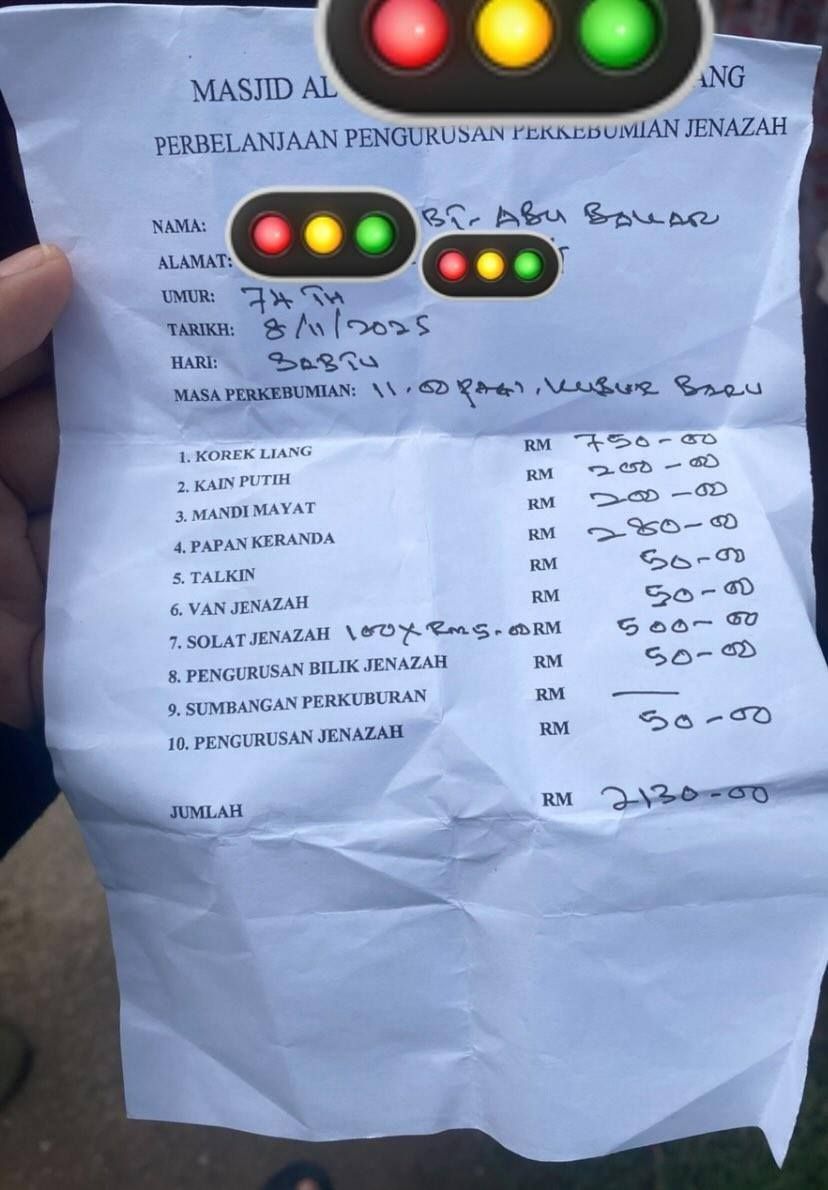 MASJID AL ANG
PERBELANJAAN PENGURUSAN PERKEBUMIAN JENAZAH
NAMA: BT. ABU BAKAR
ALAMAT:
UMUR: 74 TH
TARIKH: 8/11/2025
HARI: SABTU
MASA PERKEBUMIAN: 11.00 PAGI, KUBUR BARU
1. KOREK LIANG RM 750-00
2. KAIN PUTIH RM 200-00
3. MANDI MAYAT RM 200-00
4. PAPAN KERANDA RM 280-00
5. TALKIN RM 50-00
6. VAN JENAZAH RM 50-00
7. SOLAT JENAZAH 100 X RM5.00 RM 500-00
8. PENGURUSAN BILIK JENAZAH RM 50-00
9. SUMBANGAN PERKUBURAN RM —
10. PENGURUSAN JENAZAH RM 50-00
JUMLAH RM 2130-00